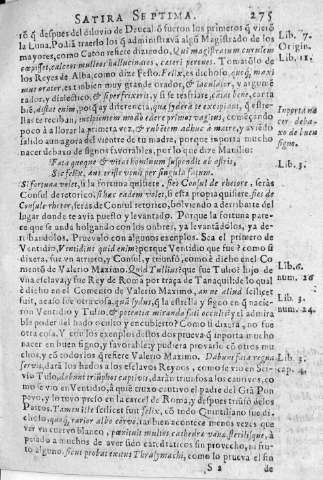 SATIRA SEPTIMA. 275
rō q̃ despues del diluvio de Deucaliō fueron los primeros q̃ vierō
la Luna. Podia traerlo los q̃ administravã algũ Magistrado de los
mayores, como Catón refiere diziendo, Qui magistratum curulem
cepisset, calceos mulleos hallucinatos, ceteri perones. Tomarōlo de
los Reyes de Alba, como dize Festo. Felix, es dichoso,
orator, est tambien muy grande orador, & iaculator, y argumē
tador, y dialectico, & si perfrixerit, y si se resfriare,
bien, distat enim, porq̃ ay diferencia, que sydera te excipiant, q̃ estre-
llas te reciban, incipientem modo edere primos vagitus, començando
poco à llorar la primera vez, & rubẽtem adhuc à matre, y aviẽdo
salido aun agora del vientre de tu madre, porque importa mucho
nacer debaxo de signos favorables, por lo que dize Manilio:
Fata quoque & vitas hominum suspendit ab astris,
Si fortuna volet, si la fortuna quisiere, fies Consul de rhetore, serás
Consul de retorico, si hæc eadem volet, si esta propia quisiere, fies de
Consule rhetor, serás de Consul retorico, bolviendo a derribarte del
lugar donde te avia puesto y levantado. Porque la fortuna pare-
ce que se anda holgando con los ombres, ya levantãdolos, ya de-
rribãndolos. Pruevalo con algunos exemplos. Sea el primero de
Ventidio, Ventidius quid enim? porque Ventidio que fue? como si
dixera, fue vn arriero, y Consul, y triunfó, como è dicho en el Co-
mento de Valerio Maximo. Quid Tullius? que fue Tulio? hijo de
vna esclava, y fue Rey de Roma por traça de Tanaquil de lo qual
è dicho en el Comento de Valerio Maximo, an ne aliud scilicet
fuit, acaso fue otra cosa, quã sydus, q̃ la estrella y signo en q̃ nacie-
ron Ventidio y Tulio, & potentia miranda fati occulti? y el admira
ble poder del hado oculto y encubierto? Como si dixera, no fue
otra cosa. Y con los exemplos destos dos prueva q̃ importa mucho
nacer en buen signo, y favorable, y pudiera provarlo cō otros mu-
chos, y cō todos los q̃ refiere Valerio Maximo. Dabunt fata regna
servis, darã los hados a los esclavos Reynos, como se vio en Ser-
vio Tulio, dabunt triumphos captivis, darãn triunfos a los cautivos, co
mo se vio en Ventidio, à quiē truxo cautivo el padre del Grã Pom
peyo, y lo tuvo preso en la carcel de Roma, y despues triunfó de los
Partos. Tamen ille scilicet fuit felix, cō todo Quintiliano fue di-
choso, quoq̃, rarior albo corvo, tambien acontece menos vezes que
ver vn cuervo blanco, pœnituit multos cathedræ vanæ sterilisque, à
pesado a muchos de aver sido catedraticos sin provecho, ni fru-
to alguno. sicut probat exitus Thrasymachi, como lo prueva el fin
S 2 de
Lib. 7.
Origin.
Lib. 12.
Importa na
cer deba-
xo de buen
signo.
Lib. 3.
Lib. 6.
num. 26
Lib. 3.
num. 24.
Lib. 3.
cap. 4.